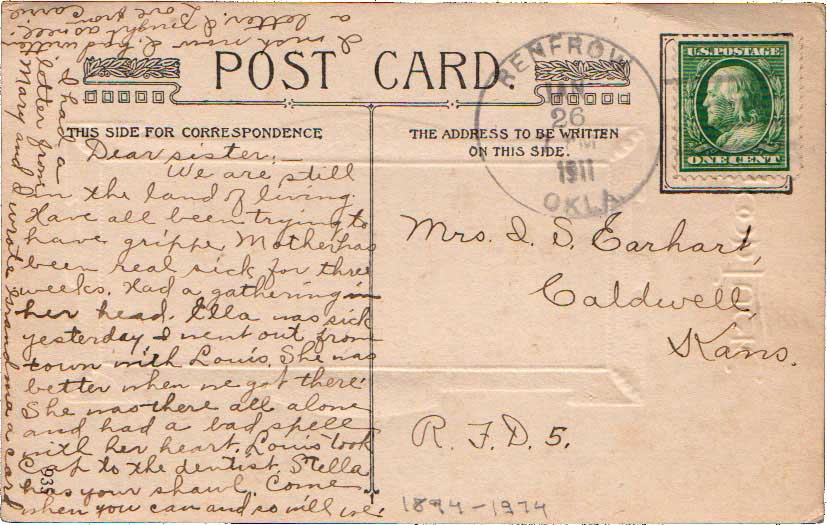 POST CARD.
THIS SIDE FOR CORRESPONDENCE
THE ADDRESS TO BE WRITTEN
ON THIS SIDE.
RENFROW
JAN
26
PM
1911
OKLA
U.S. POSTAGE
ONE CENT
Dear sister,—
We are still
in the land of living.
Have all been trying to
have grippe. Mother has
been real sick for three
weeks. Had a gathering in
her head. Ella was sick
yesterday I went out from
town with Louis. She was
better when we got there.
She was there all alone
and had a bad spell
with her heart. Louis took
to the dentist. Stella
has your shawl. Come
when you can and so will we.
I had a letter from
Mary and I wrote Grandma a card
I most now I had written
a letter. I might as well.
Love from Carrie
Mrs. I. S. Earhart,
Caldwell,
Kans.
R. F. D. 5.
1894-1974
935